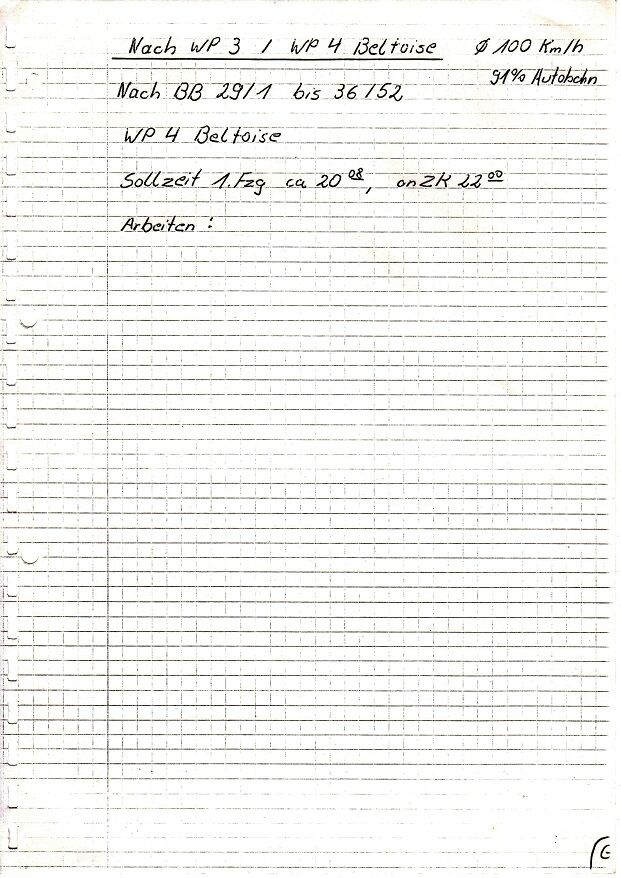 Nach WP 3 / WP 4 Beltoise Ø 100 Km/h
91% Autobahn
Nach BB 29/1 bis 36/52
WP 4 Beltoise
Sollzeit 1. Fzg ca 20 08, an ZK 22 00
Arbeiten :